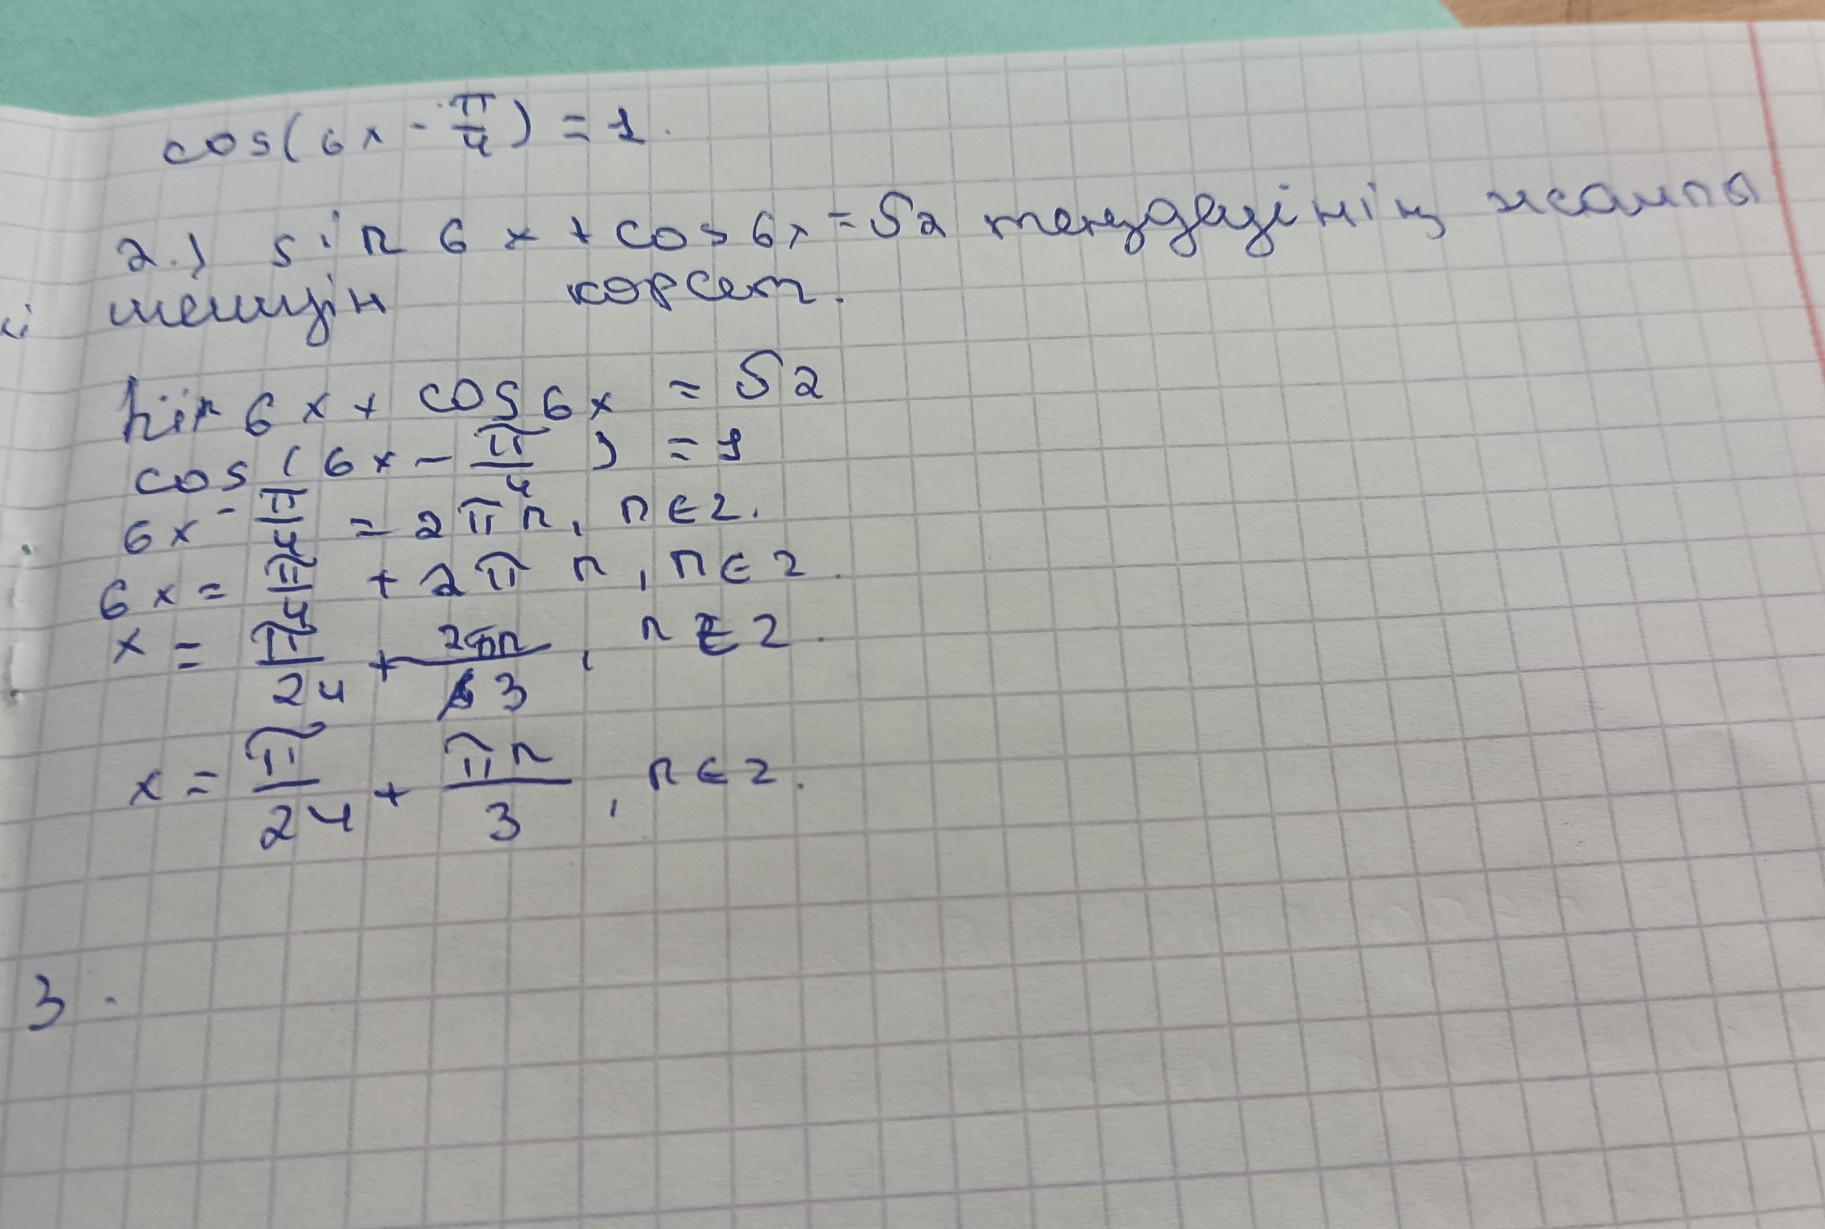 cos(6x - π/4) = 1.
2.) sin 6x + cos 6x = √2 теңдеуінің жалпы
шешуін көрсет.
sin 6x + cos 6x = √2
cos (6x - π/4) = 1
6x - π/4 = 2πn, n∈Z.
6x = π/4 + 2πn, n∈Z.
x = π/24 + 2πn/3, n∈Z.
x = π/24 + πn/3, n∈Z.
3.